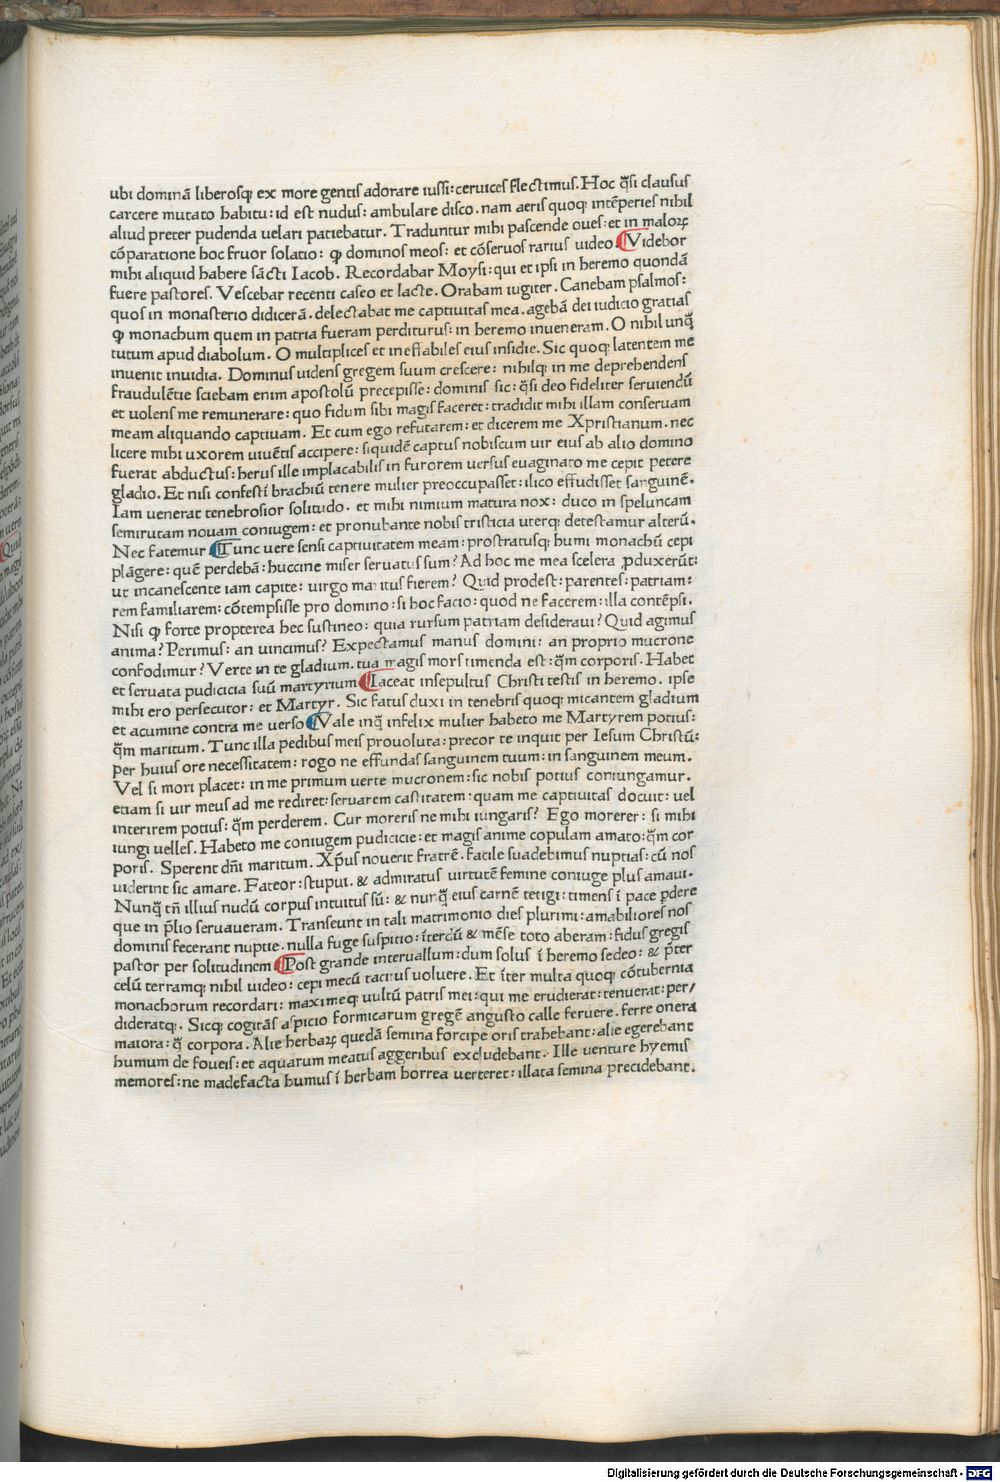 ubi dominā liberosq; ex more gentis adorare iussi: ceruices flectimus. Hoc q̄si clausus
carcere mutato habitu: id est nudus: ambulare disco. nam aeris quoq; intēperies nihil
aliud preter pudenda uelari patiebatur. Traduntur mihi pascende oues: et in maloꝝ
cōparatione hoc fruor solatio: ꝙ dominos meos: et cōseruos rarius uideo. Videbor
mihi aliquid habere sācti Iacob. Recordabar Moysi: qui et ipsi in heremo quondā
fuere pastores. Vescebar recenti caseo et lacte. Orabam iugiter. Canebam psalmos:
quos in monasterio didicerā. delectabat me captiuitas mea. agebā dei iudicio gratias
ꝙ monachum quem in patria fueram perditurus: in heremo inueneram. O nihil unq̄
tutum apud diabolum. O multiplices et ineffabiles eius insidie. Sic quoq; latentem me
inuenit inuidia. Dominus uidens gregem suum crescere: nihilq; in me deprehendens
fraudulētie sciebam enim apostolū precepisse: dominis sic: q̄si deo fideliter seruiendū
et uolens me remunerare: quo fidum sibi magis faceret: tradidit mihi illam conseruam
meam aliquando captiuam. Et cum ego refutarem: et dicerem me Xpristianum. nec
licere mihi uxorem uiuētis accipere: siquidē captus nobiscum uir eius ab alio domino
fuerat abductus: herus ille implacabilis in furorem uersus euaginato me cepit petere
gladio. Et nisi confestī brachiū tenere mulier preoccupasset: ilico effudisset sanguinē.
Iam uenerat tenebrosior solitudo. et mihi nimium matura nox: duco in speluncam
semirutam nouam coniugem: et pronubante nobis tristicia uterq; detestamur alterū.
Nec fatemur Tunc uere sensi captiuitatem meam: prostratusq; humi monachū cepi
plāgere: quē perdebā: huccine miser seruatus sum? Ad hoc me mea scelera ꝓduxerūt:
ut incanescente iam capite: uirgo maritus fierem? Quid prodest: parentes: patriam:
rem familiarem: cōtempsisse pro domino: si hoc facio: quod ne facerem: illa contēpsi.
Nisi ꝙ forte propterea hec sustineo: quia rursum patriam desideraui? Quid agimus
anima? Perimus: an uincimus? Expectamus manus domini: an proprio mucrone
confodimur? Verte in te gladium. tua magis mors timenda est: q̄m corporis. Habet
et seruata pudicicia suū martyrium Iaceat insepultus Christi testis in heremo. ipse
mihi ero persecutor: et Martyr. Sic fatus duxi in tenebris quoq; micantem gladium
et acumine contra me uerso Vale inq̄ infelix mulier habeto me Martyrem potius:
q̄m maritum. Tunc illa pedibus meis prouoluta: precor te inquit per Iesum Christū:
per huius ore necessitatem: rogo ne effundas sanguinem tuum: in sanguinem meum.
Vel si mori placet: in me primum uerte mucronem: sic nobis potius coniungamur.
etiam si uir meus ad me rediret: seruarem castitatem: quam me captiuitas docuit: uel
interirem potius: q̄m perderem. Cur moreris ne mihi iungaris? Ego morerer: si mihi
iungi uelles. Habeto me coniugem pudicicie: et magis anime copulam amato: q̄m cor
poris. Sperent dn̄i maritum. Xp̄us nouerit fratrē. facile suadebimus nuptias: cū nos
uiderint sic amare. Fateor: stupui. & admiratus uirtutē femine coniuge plus amaui.
Nunq̄ tn̄ illius nudū corpus intuitus sū: & nunq̄ eius carnē tetigi: timens ī pace ꝑdere
que in p̄lio seruaueram. Transeunt in tali matrimonio dies plurimi: amabiliores nos
dominis fecerant nuptie. nulla fuge suspitio: īterdū & mēse toto aberam: fidus gregis
pastor per solitudinem Post grande interuallum: dum solus ī heremo sedeo: & p̄ter
celū terramq; nihil uideo: cepi mecū tacitus uoluere. Et īter multa quoq; cōtubernia
monachorum recordari: maximeq; uultū patris mei: qui me erudierat: tenuerat: per/
dideratq;. Sicq; cogitās aspicio formicarum gregē angusto calle feruere. ferre onera
maiora: q̄ corpora. Alie herbaꝝ quedā semina forcipe oris trahebant: alie egerebant
humum de foueis: et aquarum meatus aggeribus excludebant. Ille uenture hyemis
memores: ne madefacta humus ī herbam horrea uerteret: illata semina precidebant.
Digitalisierung gefördert durch die Deutsche Forschungsgemeinschaft - DFG